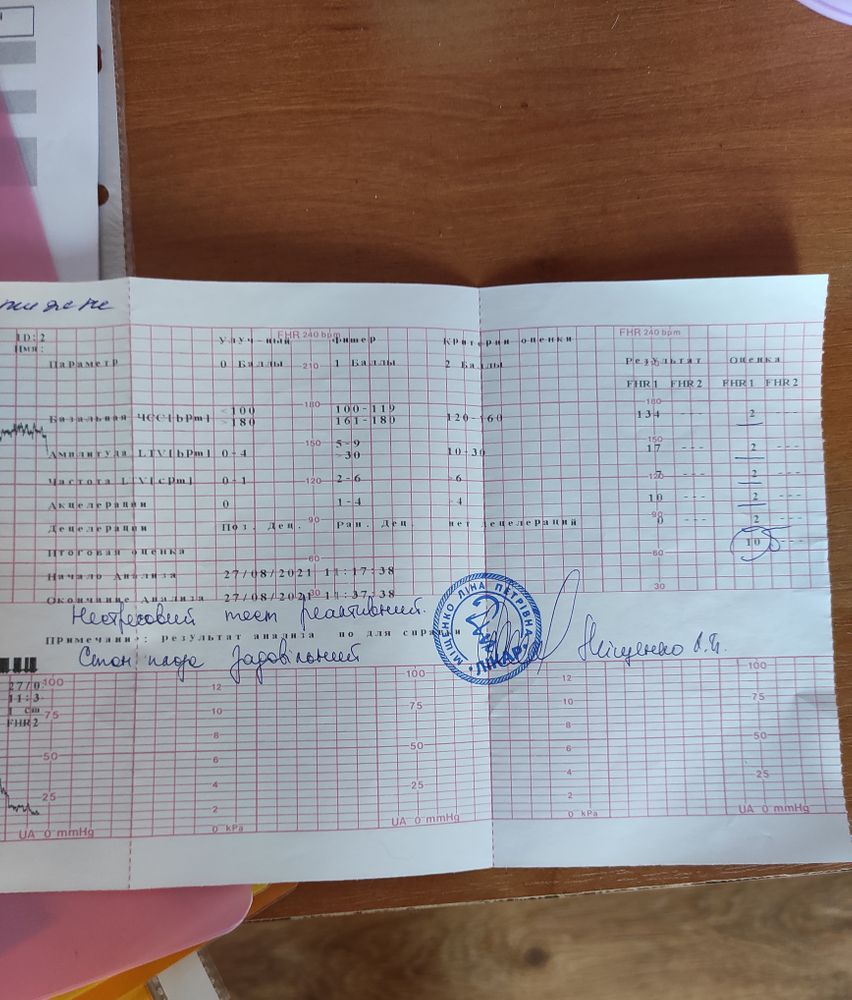 ID:2
Имя:
FHR 240 bpm
FHR 240 bpm
Улуч-ный Фишер Критерии оценки
Параметр 0 Баллы 210 1 Баллы 2 Баллы Результат Оценка
FHR1 FHR2 FHR1 FHR2
180 180
Базальная ЧСС[bpm] <100 100-119 120-160 134 --- 2 ---
>180 161-180
150 150
Амплитуда LTV[bpm] 0-4 5-9 10-30 17 --- 2 ---
>30
Частота LTV[cpm] 0-1 120 2-6 >6 --- 2 ---
Акцелерации 0 1-4 >4 10 --- 2 ---
90 90
Децелерации Поз. Дец. Ран. Дец. нет децелераций 0 --- 2 ---
Итоговая оценка 10 ---
60 60
Начало Анализа 27/08/2021 11:17:38
30 30
Окончание Анализа 27/08/2021 11:37:38
Нестресовий тест реактивний.
Примечание: результат анализа для справки
Стан плода задовільний
МІЩЕНКО ЛІНА ПЕТРІВНА
ЛІКАР
Міщенко Л.П.
27/0
11:3
1 cm
FHR2
100 12 100 12 100
75 10 75 10 75
8 8
50 6 50 6 50
25 4 25 4 25
2 2
UA 0 mmHg 0 kPa UA 0 mmHg 0 kPa UA 0 mmHg